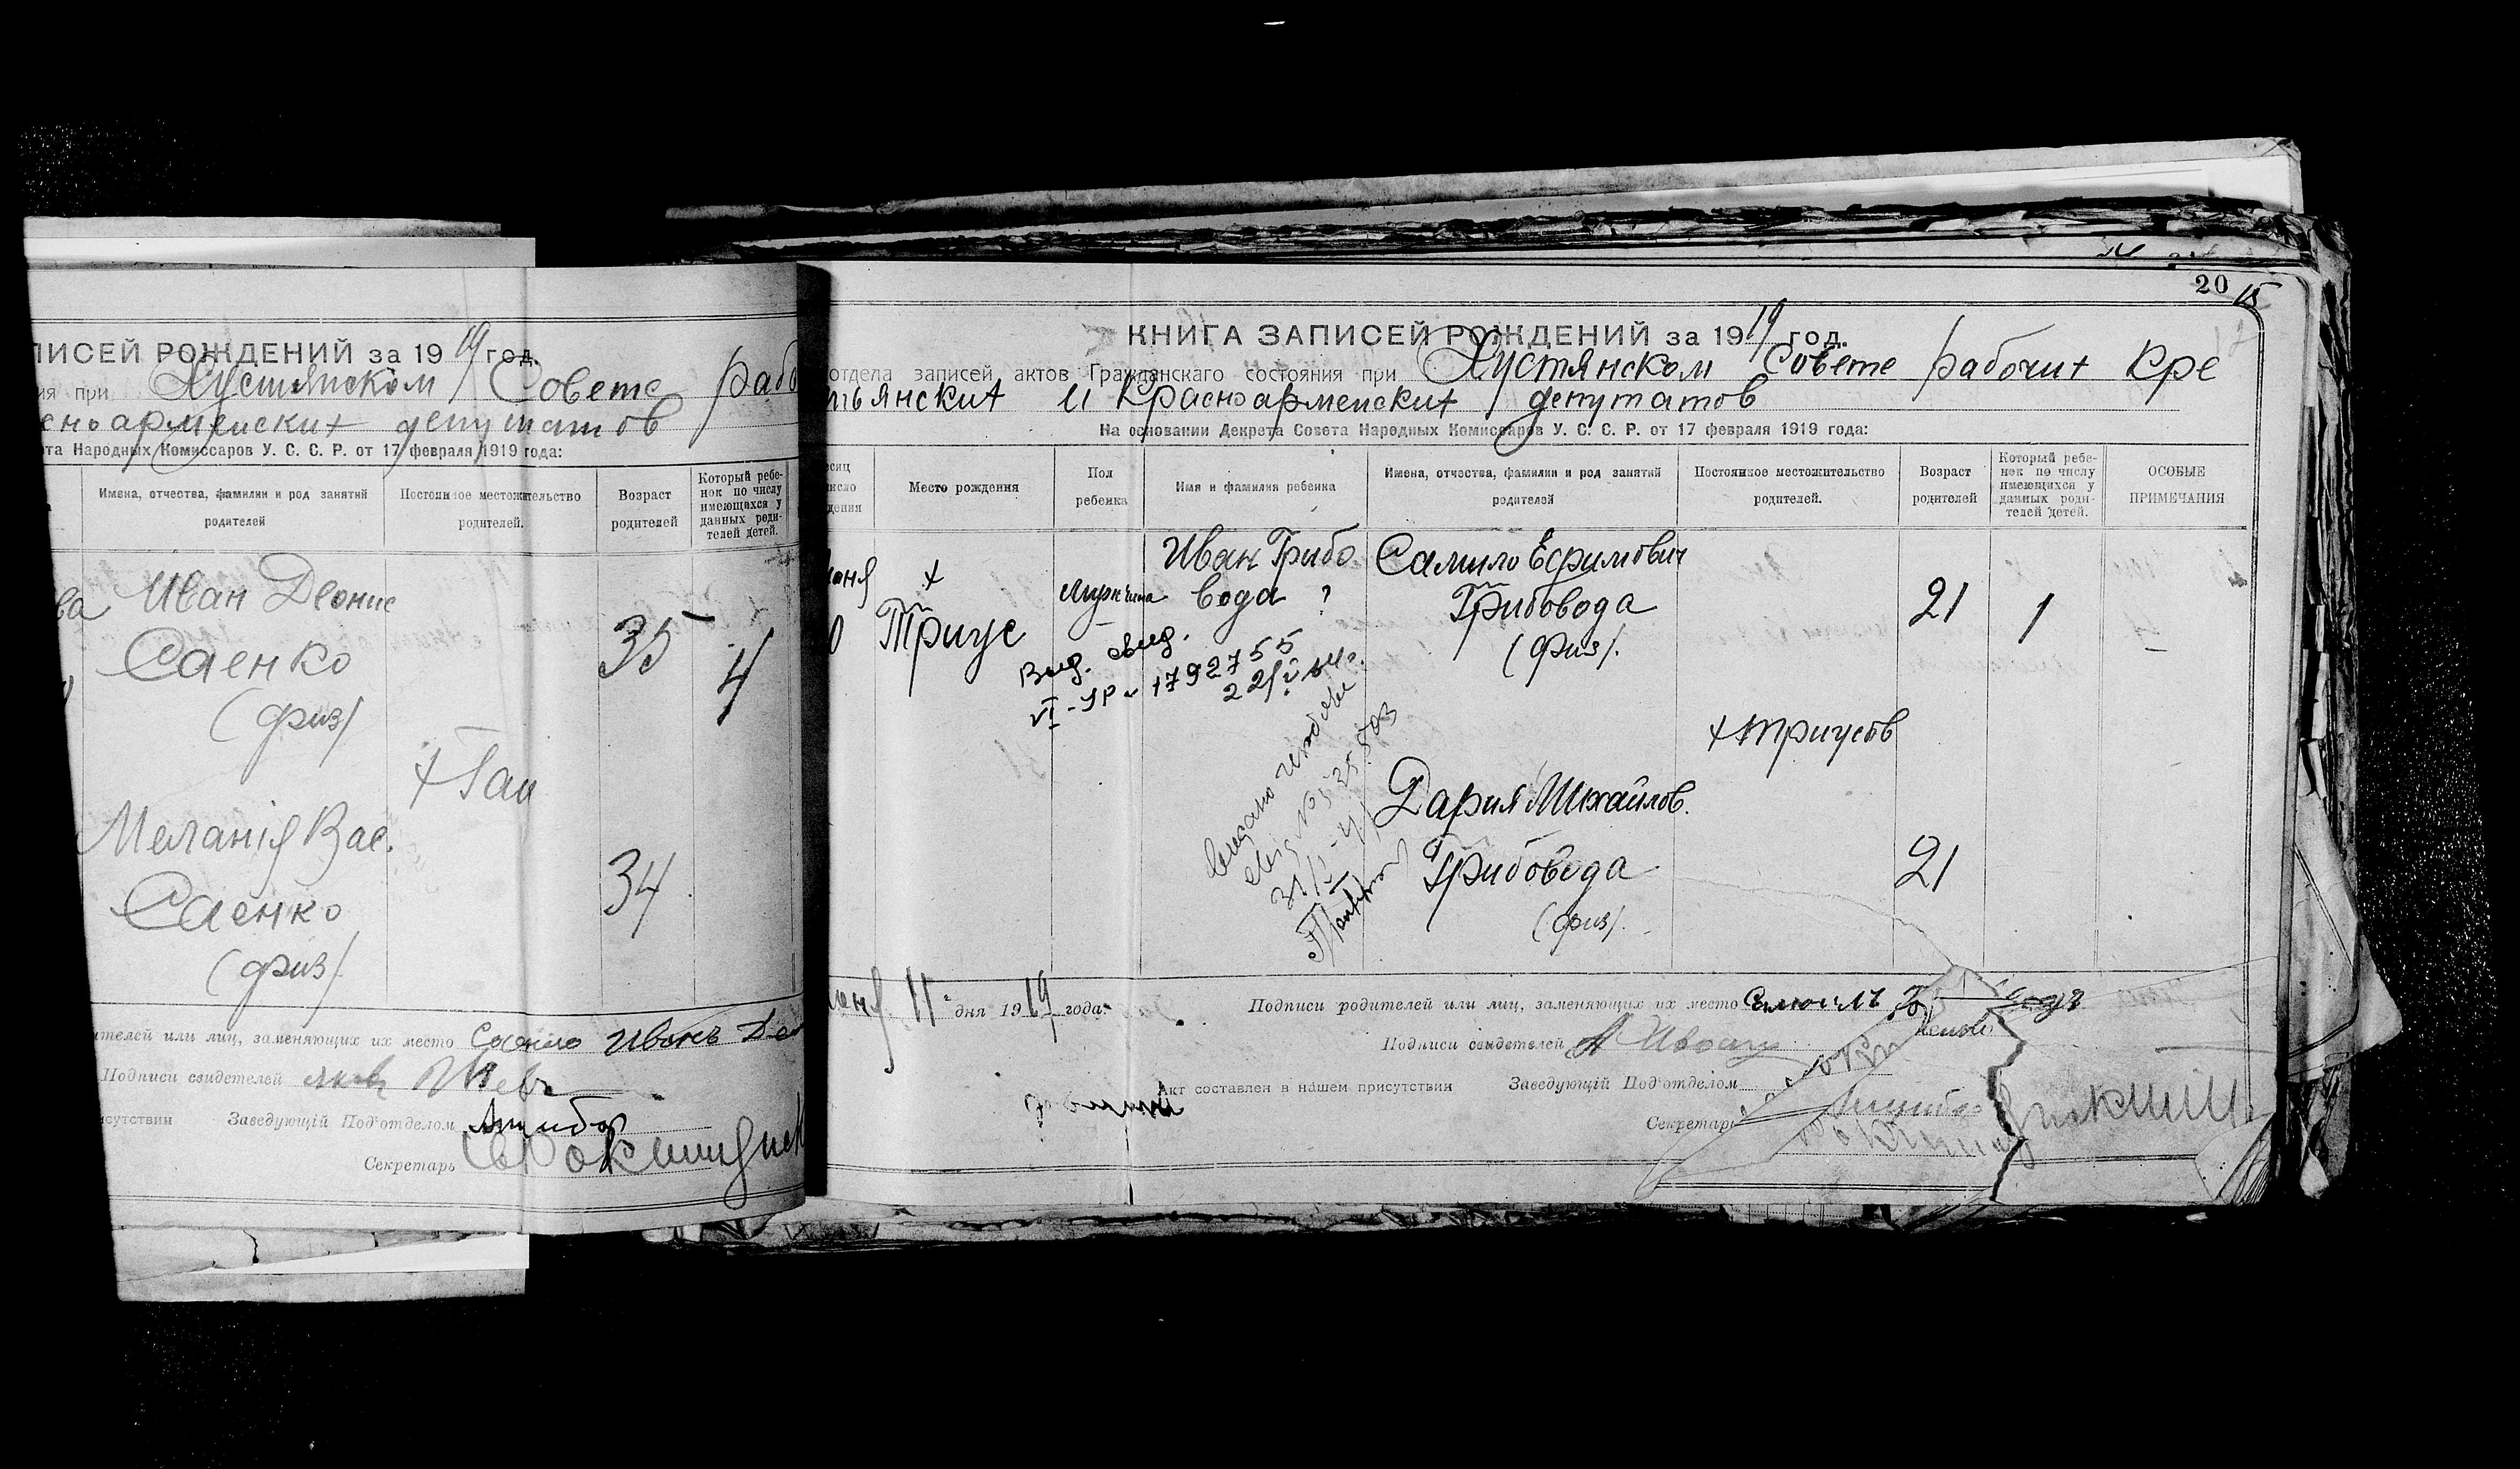 ПИСЕЙ РОЖДЕНИЙ за 1919 год.
ия при Хустянском Совете рабо
еноармейских депутатов
ота Народных Комиссаров У. С. С. Р. от 17 февраля 1919 года:
Имена, отчества, фамилии и род занятий родителей
Постоянное местожительство родителей.
Возраст родителей
Который ребенок по числу имеющихся у данных родителей детей.
ва Иван Деонис
Саенко
35
4
(физ)
х Ган
Меланія Вас.
34
Саенко
(физ)
ителей или лиц, заменяющих их место Саенко Иванъ Де
Подписи свидетелей
исутствии Заведующій Под'отделом
Секретарь
20
15
КНИГА ЗАПИСЕЙ РОЖДЕНИЙ за 1919 год.
отдела записей актов Гражданскаго состояния при Хустянском Совете рабочих Кре
тьянских и Красноармейских депутатов
На основании Декрета Совета Народных Комиссаров У. С. С. Р. от 17 февраля 1919 года:
есяц число дения
Место рождения
Пол ребенка
Имя и фамилия ребенка
Имена, отчества, фамилии и род занятий родителей
Постоянное местожительство родителей.
Возраст родителей
Который ребенок по числу имеющихся у данных родителей детей.
ОСОБЫЕ ПРИМЕЧАНИЯ
юня х Иван Грибо Самило Ефимович
0 Триус мужчина вода ? Грибовода 21 1
(физ).
Выд. свид.
VI-УР № 1792755
х Триусов
Дария Михайлов.
Грибовода 21
(физ).
юня 11 дня 1919 года.
Подписи родителей или лиц, заменяющих их место
Подписи свидетелей
Акт составлен в нашем присутствии Заведующій Под'отделом
Секретарь